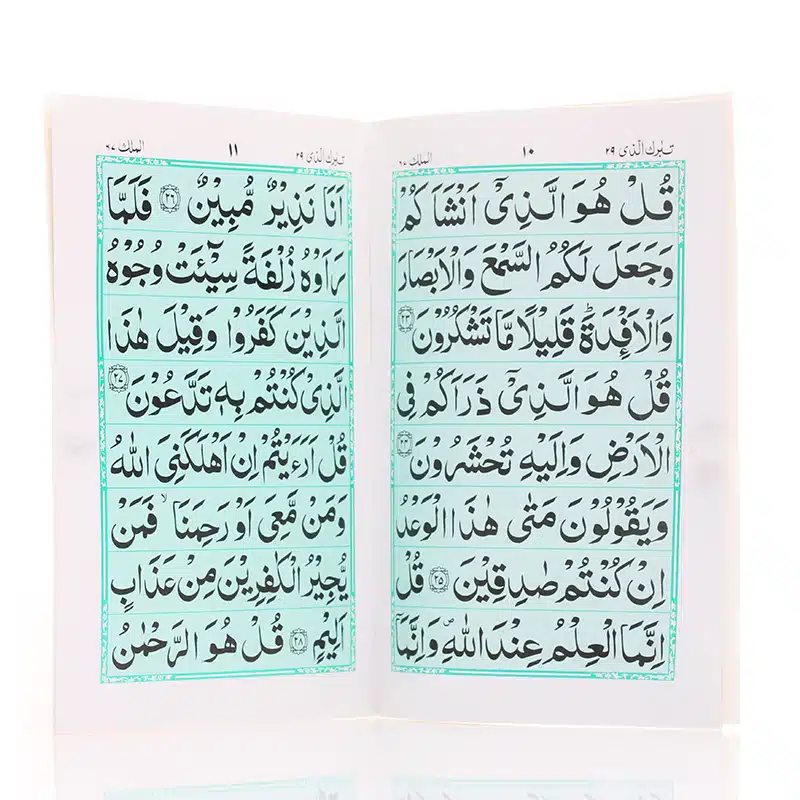 تبارك الذی ٢٩ ١٠ الملك ٦٧
قُلْ هُوَ الَّذِیْۤ اَنْشَاَكُمْ
وَجَعَلَ لَكُمُ السَّمْعَ وَالْاَبْصَارَ
وَالْاَفْـِٕدَةَ ؕ قَلِیْلًا مَّا تَشْكُرُوْنَ ٢٣
قُلْ هُوَ الَّذِیْ ذَرَاَكُمْ فِی
الْاَرْضِ وَاِلَیْهِ تُحْشَرُوْنَ ٢٤
وَیَقُوْلُوْنَ مَتٰی هٰذَا الْوَعْدُ
اِنْ كُنْتُمْ صٰدِقِیْنَ ٢٥ قُلْ
اِنَّمَا الْعِلْمُ عِنْدَ اللّٰهِ ۪ وَاِنَّمَاۤ
تبارك الذی ٢٩ ١١ الملك ٦٧
اَنَا نَذِیْرٌ مُّبِیْنٌ ٢٦ فَلَمَّا
رَاَوْهُ زُلْفَةً سِیْٓـَٔتْ وُجُوْهُ
الَّذِیْنَ كَفَرُوْا وَقِیْلَ هٰذَا
الَّذِیْ كُنْتُمْ بِهٖ تَدَّعُوْنَ ٢٧
قُلْ اَرَءَیْتُمْ اِنْ اَهْلَكَنِیَ اللّٰهُ
وَمَنْ مَّعِیَ اَوْ رَحِمَنَا ۙ فَمَنْ
یُّجِیْرُ الْكٰفِرِیْنَ مِنْ عَذَابٍ
اَلِیْمٍ ٢٨ قُلْ هُوَ الرَّحْمٰنُ